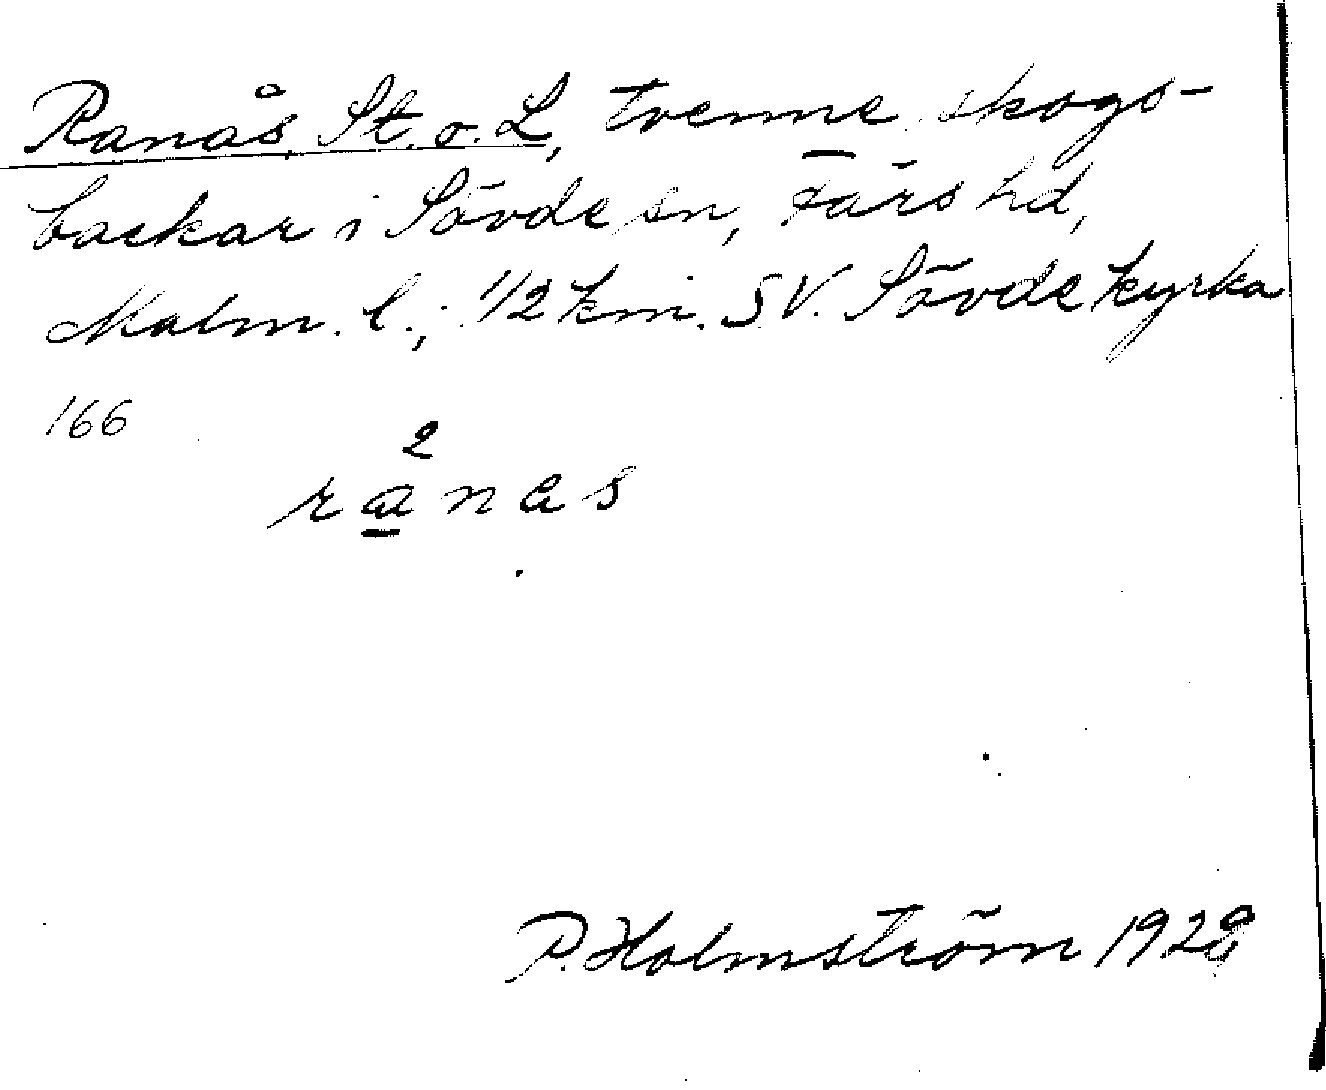 Ranås, St. o. L, tvenne skogs-
backar i Sövde sn, Färs hd,
Malm. l.; 1/2 km. SV. Sövde kyrka
166
2
ranas
P. Holmström 1928